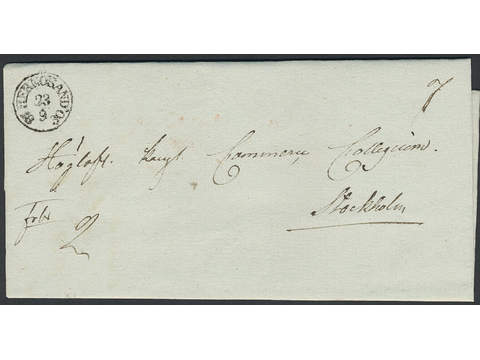 HERNÖSAND
23
9
7
Höglofl. Kongl. Commerce Collegium.
Stockholm
2